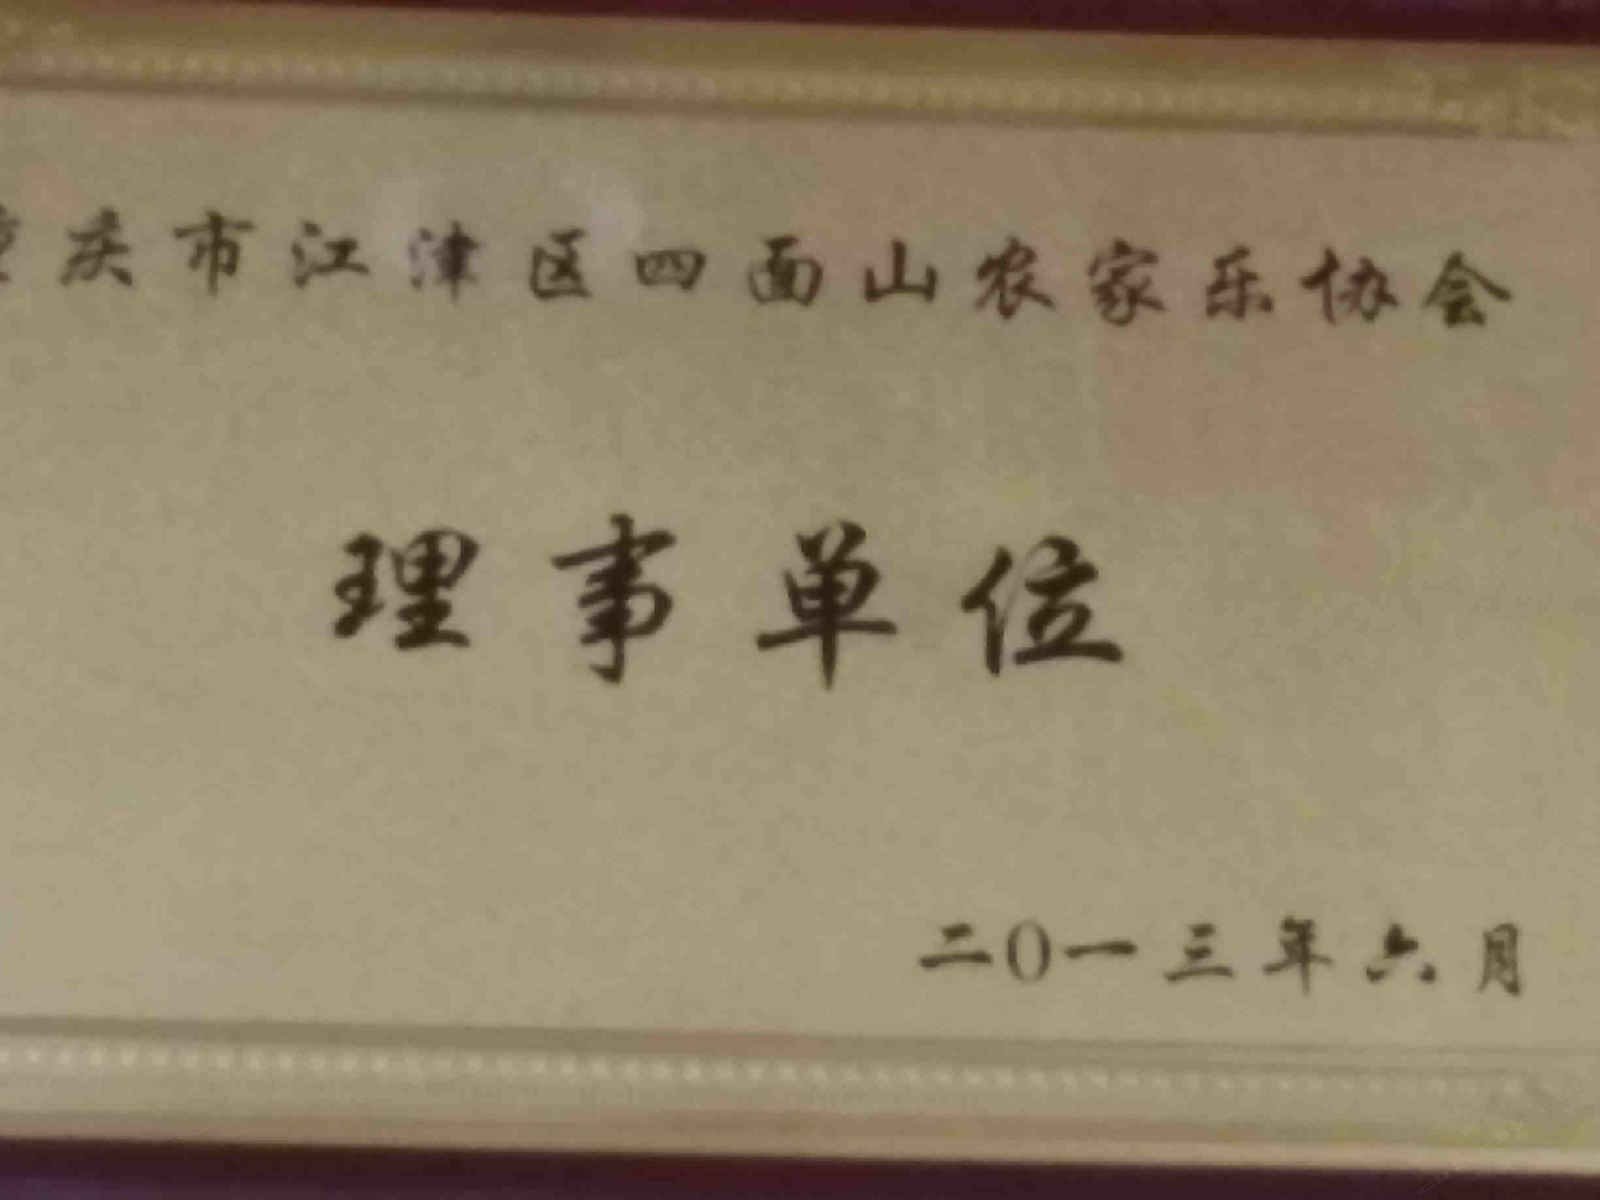 重庆市江津区四面山农家乐协会
理事单位
二0一三年六月